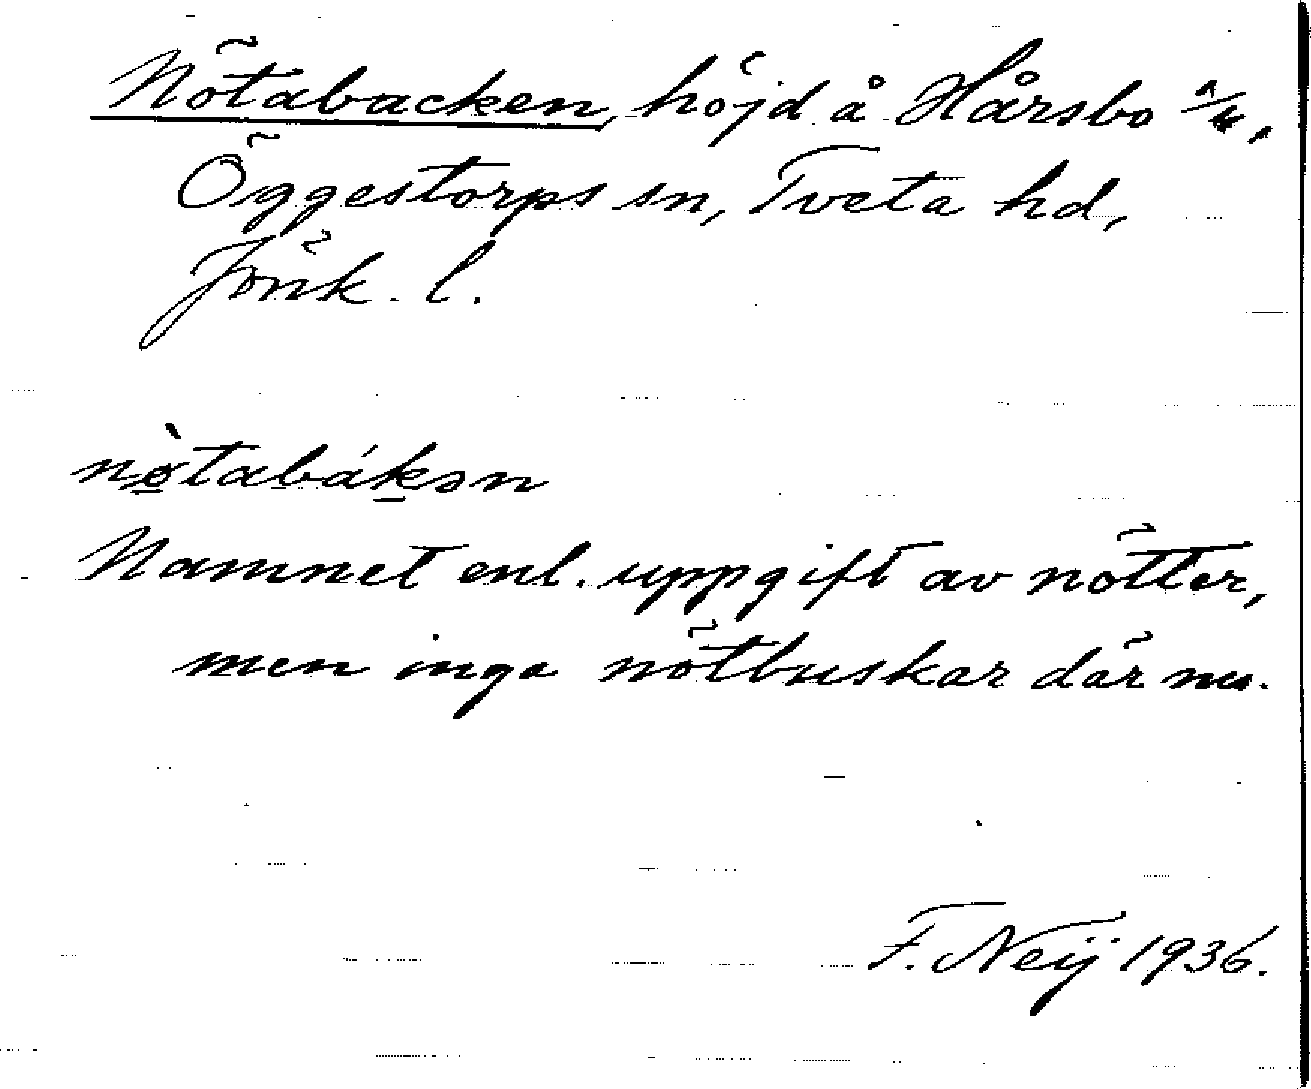 Nötabacken, höjd å Hårsbo ¹/₄,
Öggestorps sn, Tveta hd,
Jönk. l.
nø̀tabákən
Namnet enl. uppgift av nötter,
men inga nötbuskar där nu.
F. Neij 1936.